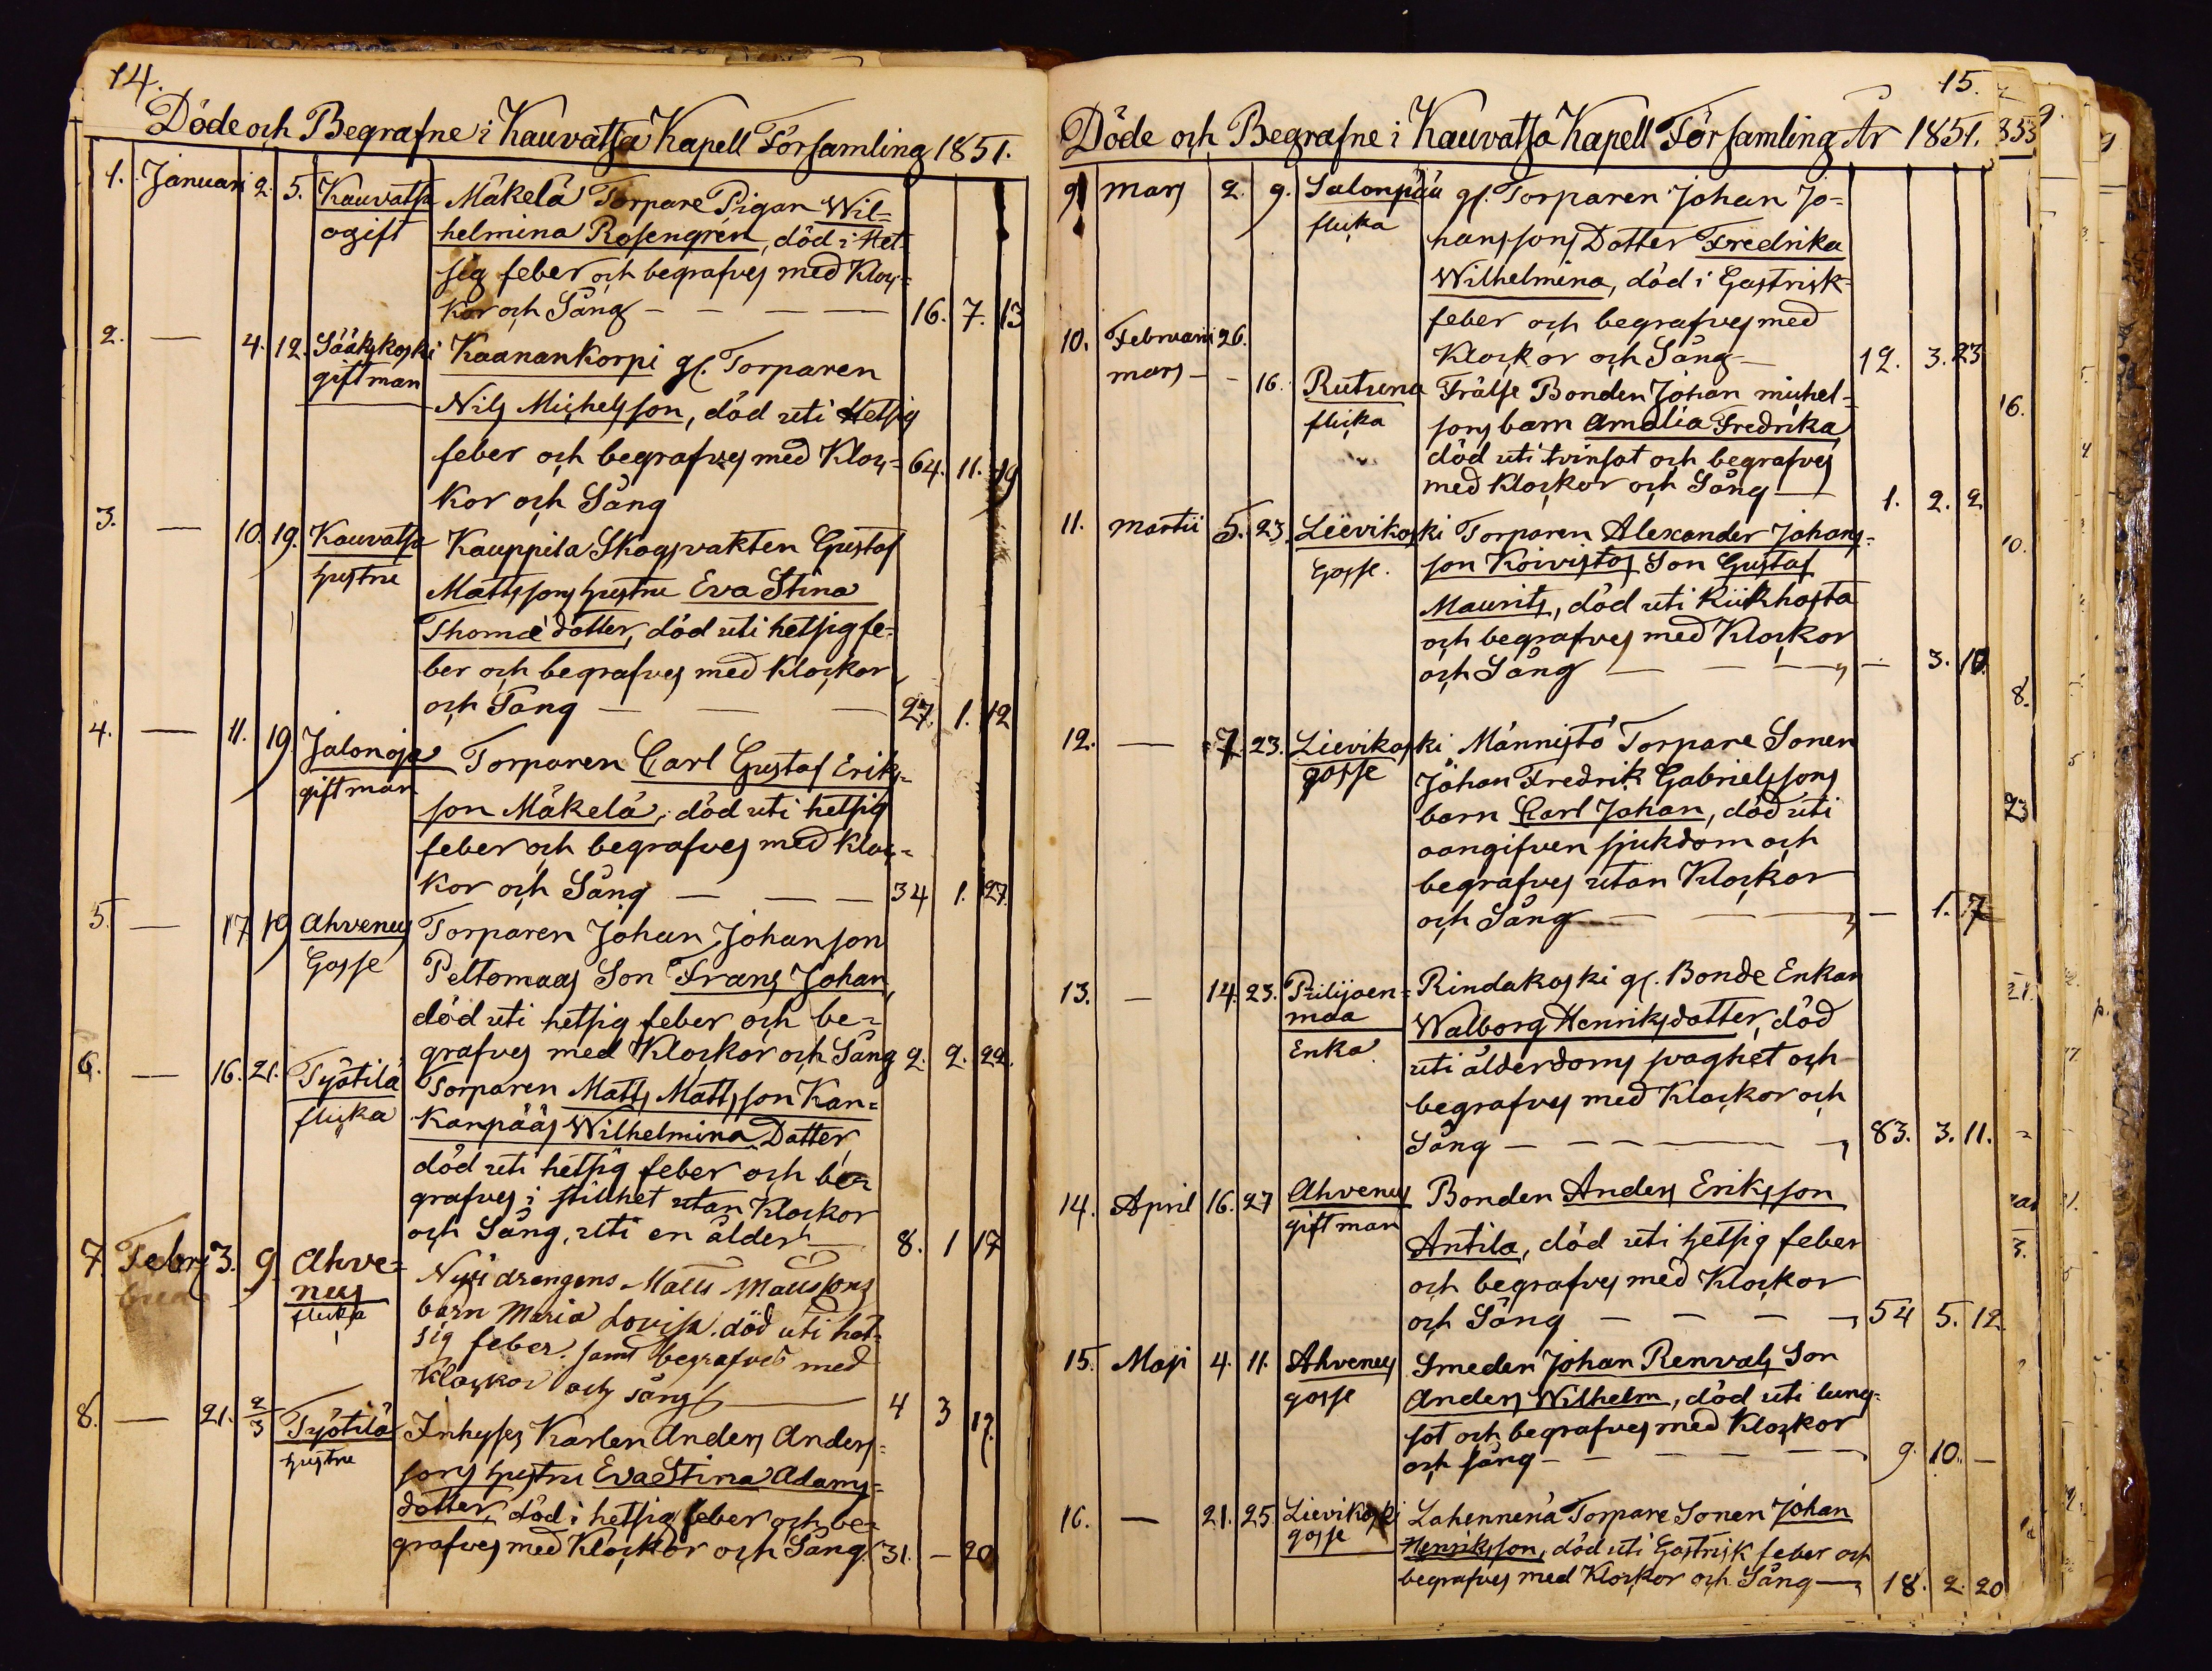 14.
Döde och Begrafne i Kauvatsa Kapell Församling 1851.
1. Januari 2. 5. Kauvatsa Mäkelä Torpare Pigan Wil=
ogift helmina Rosengrén, död i Het
sig feber och begrafves med Kloc=
kor och Sång — — — — 16. 7. 13
2. — 4. 12. Sääkskoski Kaanankorpi gl. Torparen
gift man Nils Michelsson, död uti Hetsig
feber och begrafves med Kloc= 64. 11. 19
kor och Sång
3. — 10. 19. Kauvatsa Kauppila Skogsvakten Gustaf
hustru Mattssons hustru Eva Stina
Thomædotter, död uti hetsig fe=
ber och begrafves med Klockor
och Sång — — — 27. 1. 12
4. — 11. 19 Jalonoja Torparen Carl Gustaf Eriks=
gift man son Mäkelä, död uti hetsig
feber och begrafves med Kloc=
kor och Sång — — — 34 1. 27.
5. — 17 19 Ahvenus Torparen Johan Johanson
Gosse Peltomaas Son Frans Johan,
död uti hetsig feber och be=
grafves med Klockor och Sång 2. 2. 22.
6. — 16. 21. Työtilä Torparen Matts Mattsson Kan=
flicka kanpääs Wilhelmina Dotter,
död uti hetsig feber och be=
grafves i stillhet utan Klockor
och Sång, uti en ålder — 8. 1 17
7. Febr 3. 9. Ahve= drengens Matts Mattssons
nus barn Maria Lovisa. död uti het=
flicka sig feber. samt begrafves med
Klockor och sång — 4 3 12.
8. — 21. 2/3 Työtilä Inhyses Karlen Anders Anders=
hustru sons hustru Eva Stina Adams=
dotter, död i hetsig feber och be=
grafves med Klockor och Sång. 31. — 20
15.
Döde och Begrafne i Kauvatsa Kapell Församling År 1851.
9 mars 2. 9. Salonpää gl. Torparen Johan Jo=
flicka hanssons Dotter Fredrika
Wilhelmina, död i Gastrisk=
feber och begrafves med
10. Februarii 26. Klockor och Sång — 12. 3. 23
mars — - 16. Rutsuna Frälse Bonden Johan michel=
flicka sons barn Amalia Fredrika
död uti tvinsot och begrafves
med Klockor och Sång — 1. 2. 2
11. martii 5. 23. Lievikoski Torparen Alexander Johans=
Gosse. son Koivistos Son Gustaf
Maurits, död uti Kiikhosta
och begrafves med Klockor
och Sång — — — — 3. 10.
12. — 7. 23. Lievikoski Männistö Torpare Sonen
gosse Johan Fredrik Gabrielssons
barn Carl Johan, död uti
oangifven sjukdom och
begrafves utan Klockor
och Sång — — — — 1. 7
13. — 14. 23. Piilijoen= Rindakoski gl. Bonde Enkan
maa Walborg Henriksdotter, död
Enka. uti ålderdoms svaghet och
begrafves med Klockor och
Sång — — — — 83. 3. 11.
14. April 16. 27 Ahvenus Bonden Anders Eriksson
gift man Antila, död uti hetsig feber
och begrafves med Klockor
och Sång — — — — 54 5. 12.
15. Maji 4. 11. Ahvenus Smeden Johan Renvals Son
gosse Anders Wilhelm, död uti lung=
sot och begrafves med Klockor
och sång — — — — 9. 10. —
16. — 21. 25 Lievikoski Lahennenä Torpare Sonen Johan
gosse Henriksson, död uti Gastrisk feber och
begrafves med Klockor och Sång — 18. 2. 20